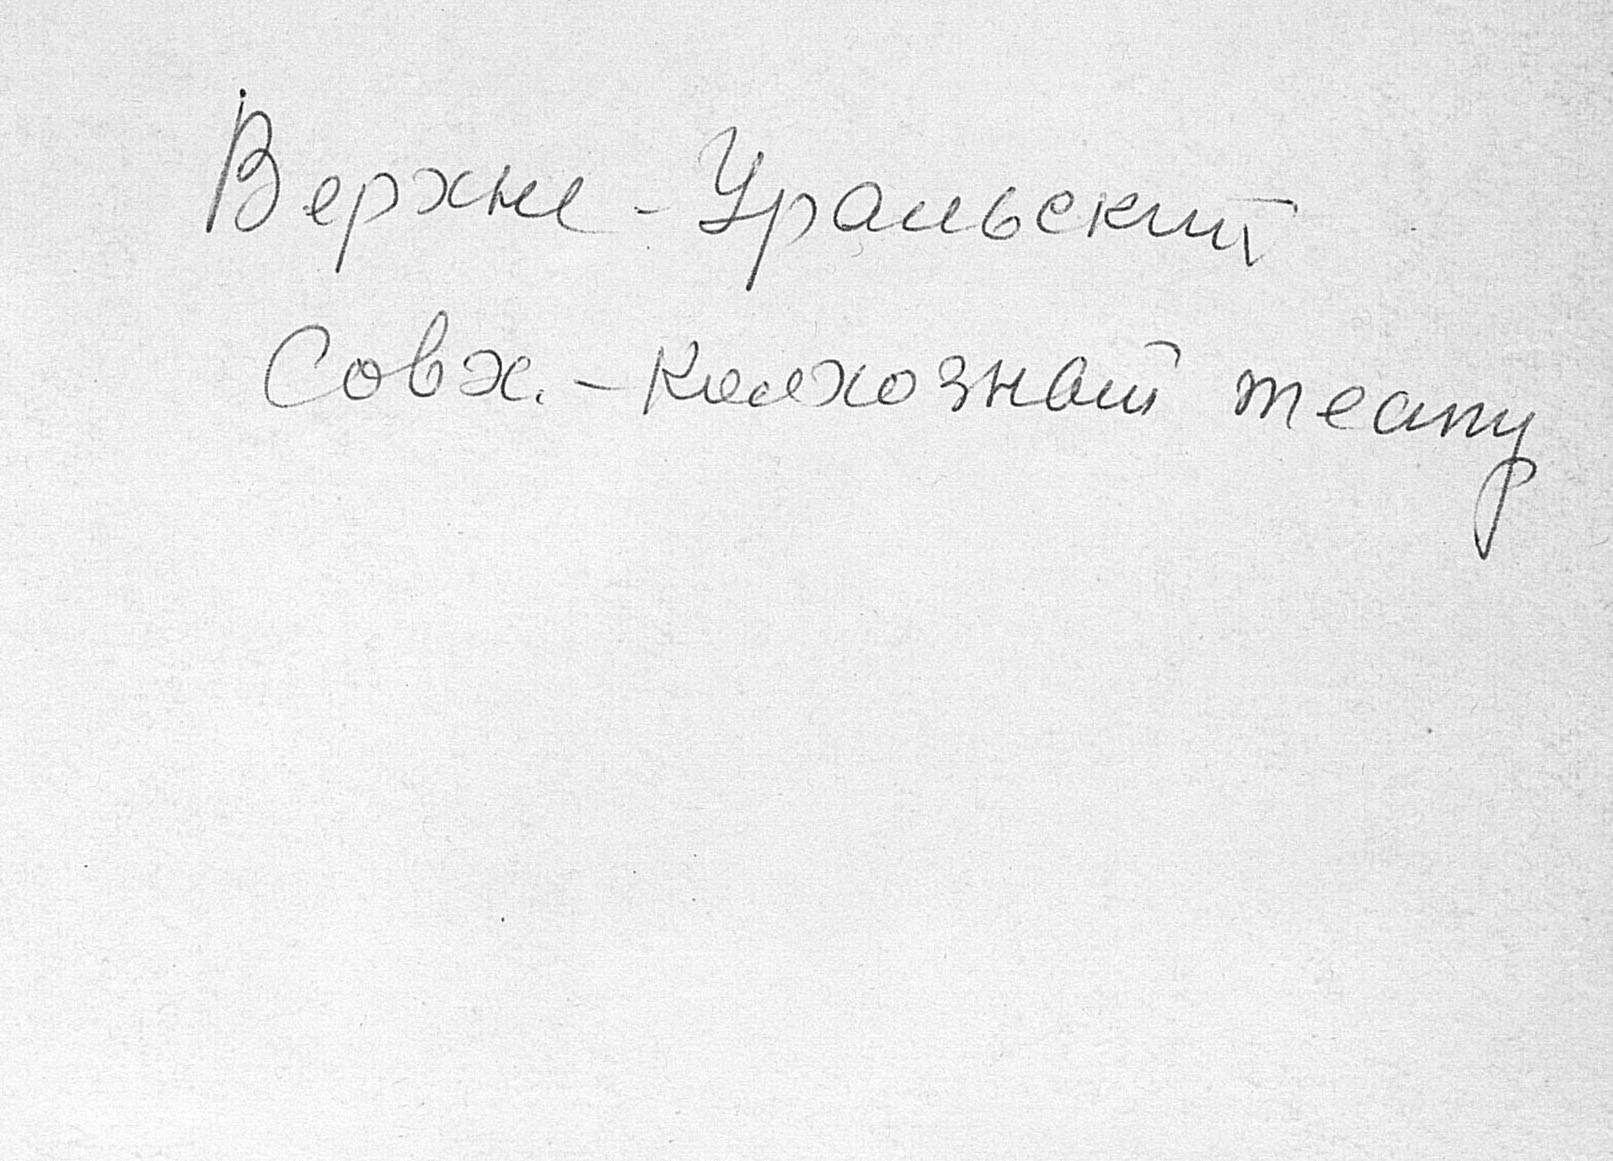 Верхне-Уральский
Совх.-колхозный театр